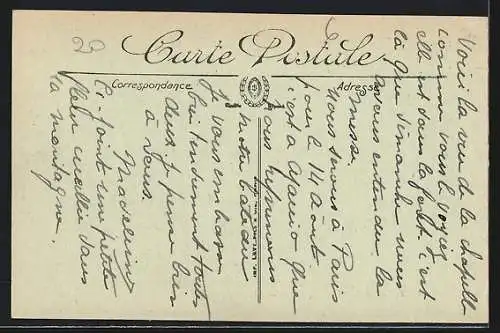 Carte Postale
Correspondance
Adresse
Voici la vue de la chapelle
comme vous le voyez
elle est dans la forêt c'est
là que dimanche nous
avons entendu la
messe.
Nous serons à Paris
pour le 14 Août
c'est à Ajaccio que
nous reprenons
notre bateau
Je vous embrasse
bien tendrement toutes
deux, je pense bien
à vous.
Madeleine
Ci-joint une petite
fleur cueillie dans
la montagne.